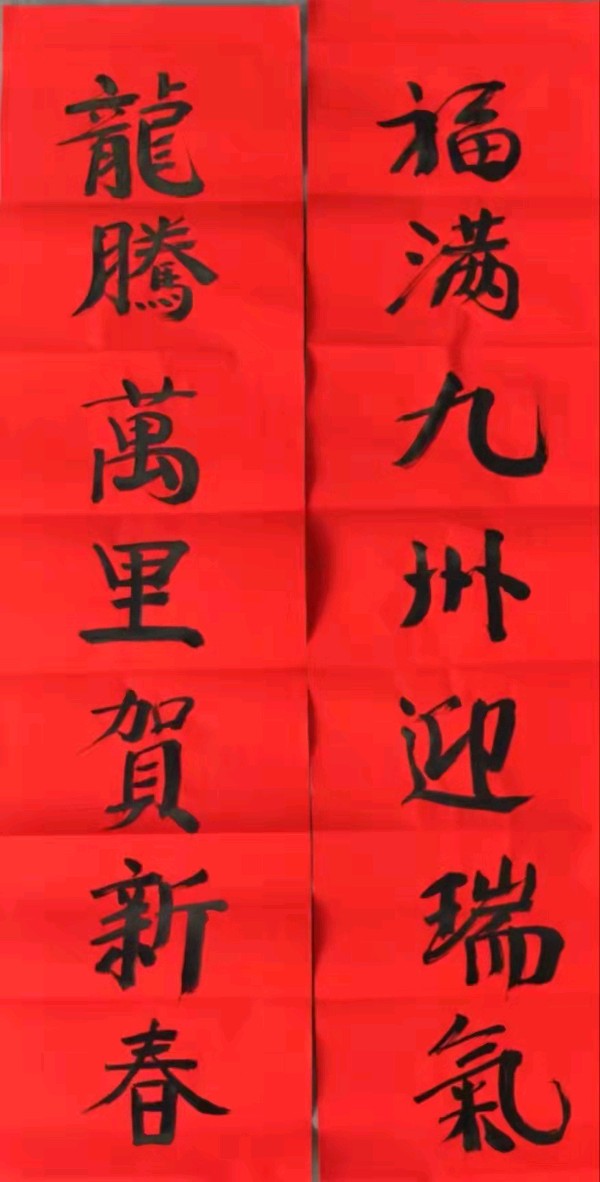 福满九州迎瑞氣
龍騰萬里賀新春